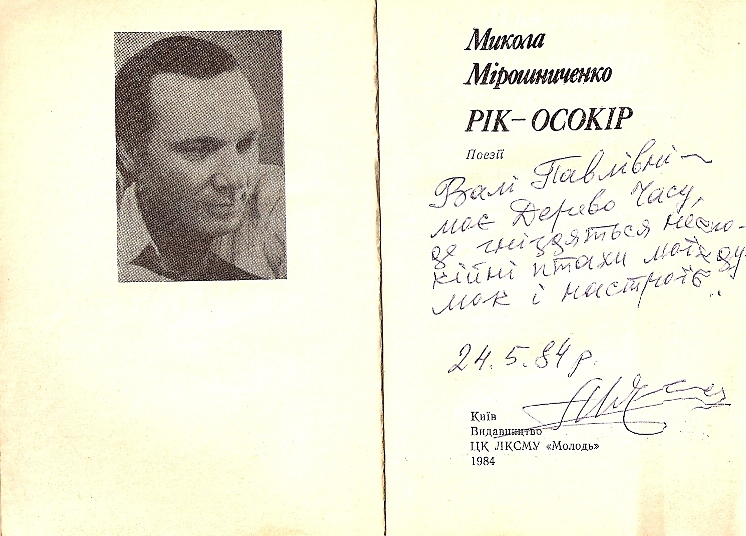 Микола
Мірошниченко
РІК—ОСОКІР
Поезії
Валі Павлівні —
моє Дерево Часу,
де гніздяться неспо-
кійні птахи моїх ду-
мок і настроїв..
24.5.84 р.
Київ
Видавництво
ЦК ЛКСМУ «Молодь»
1984